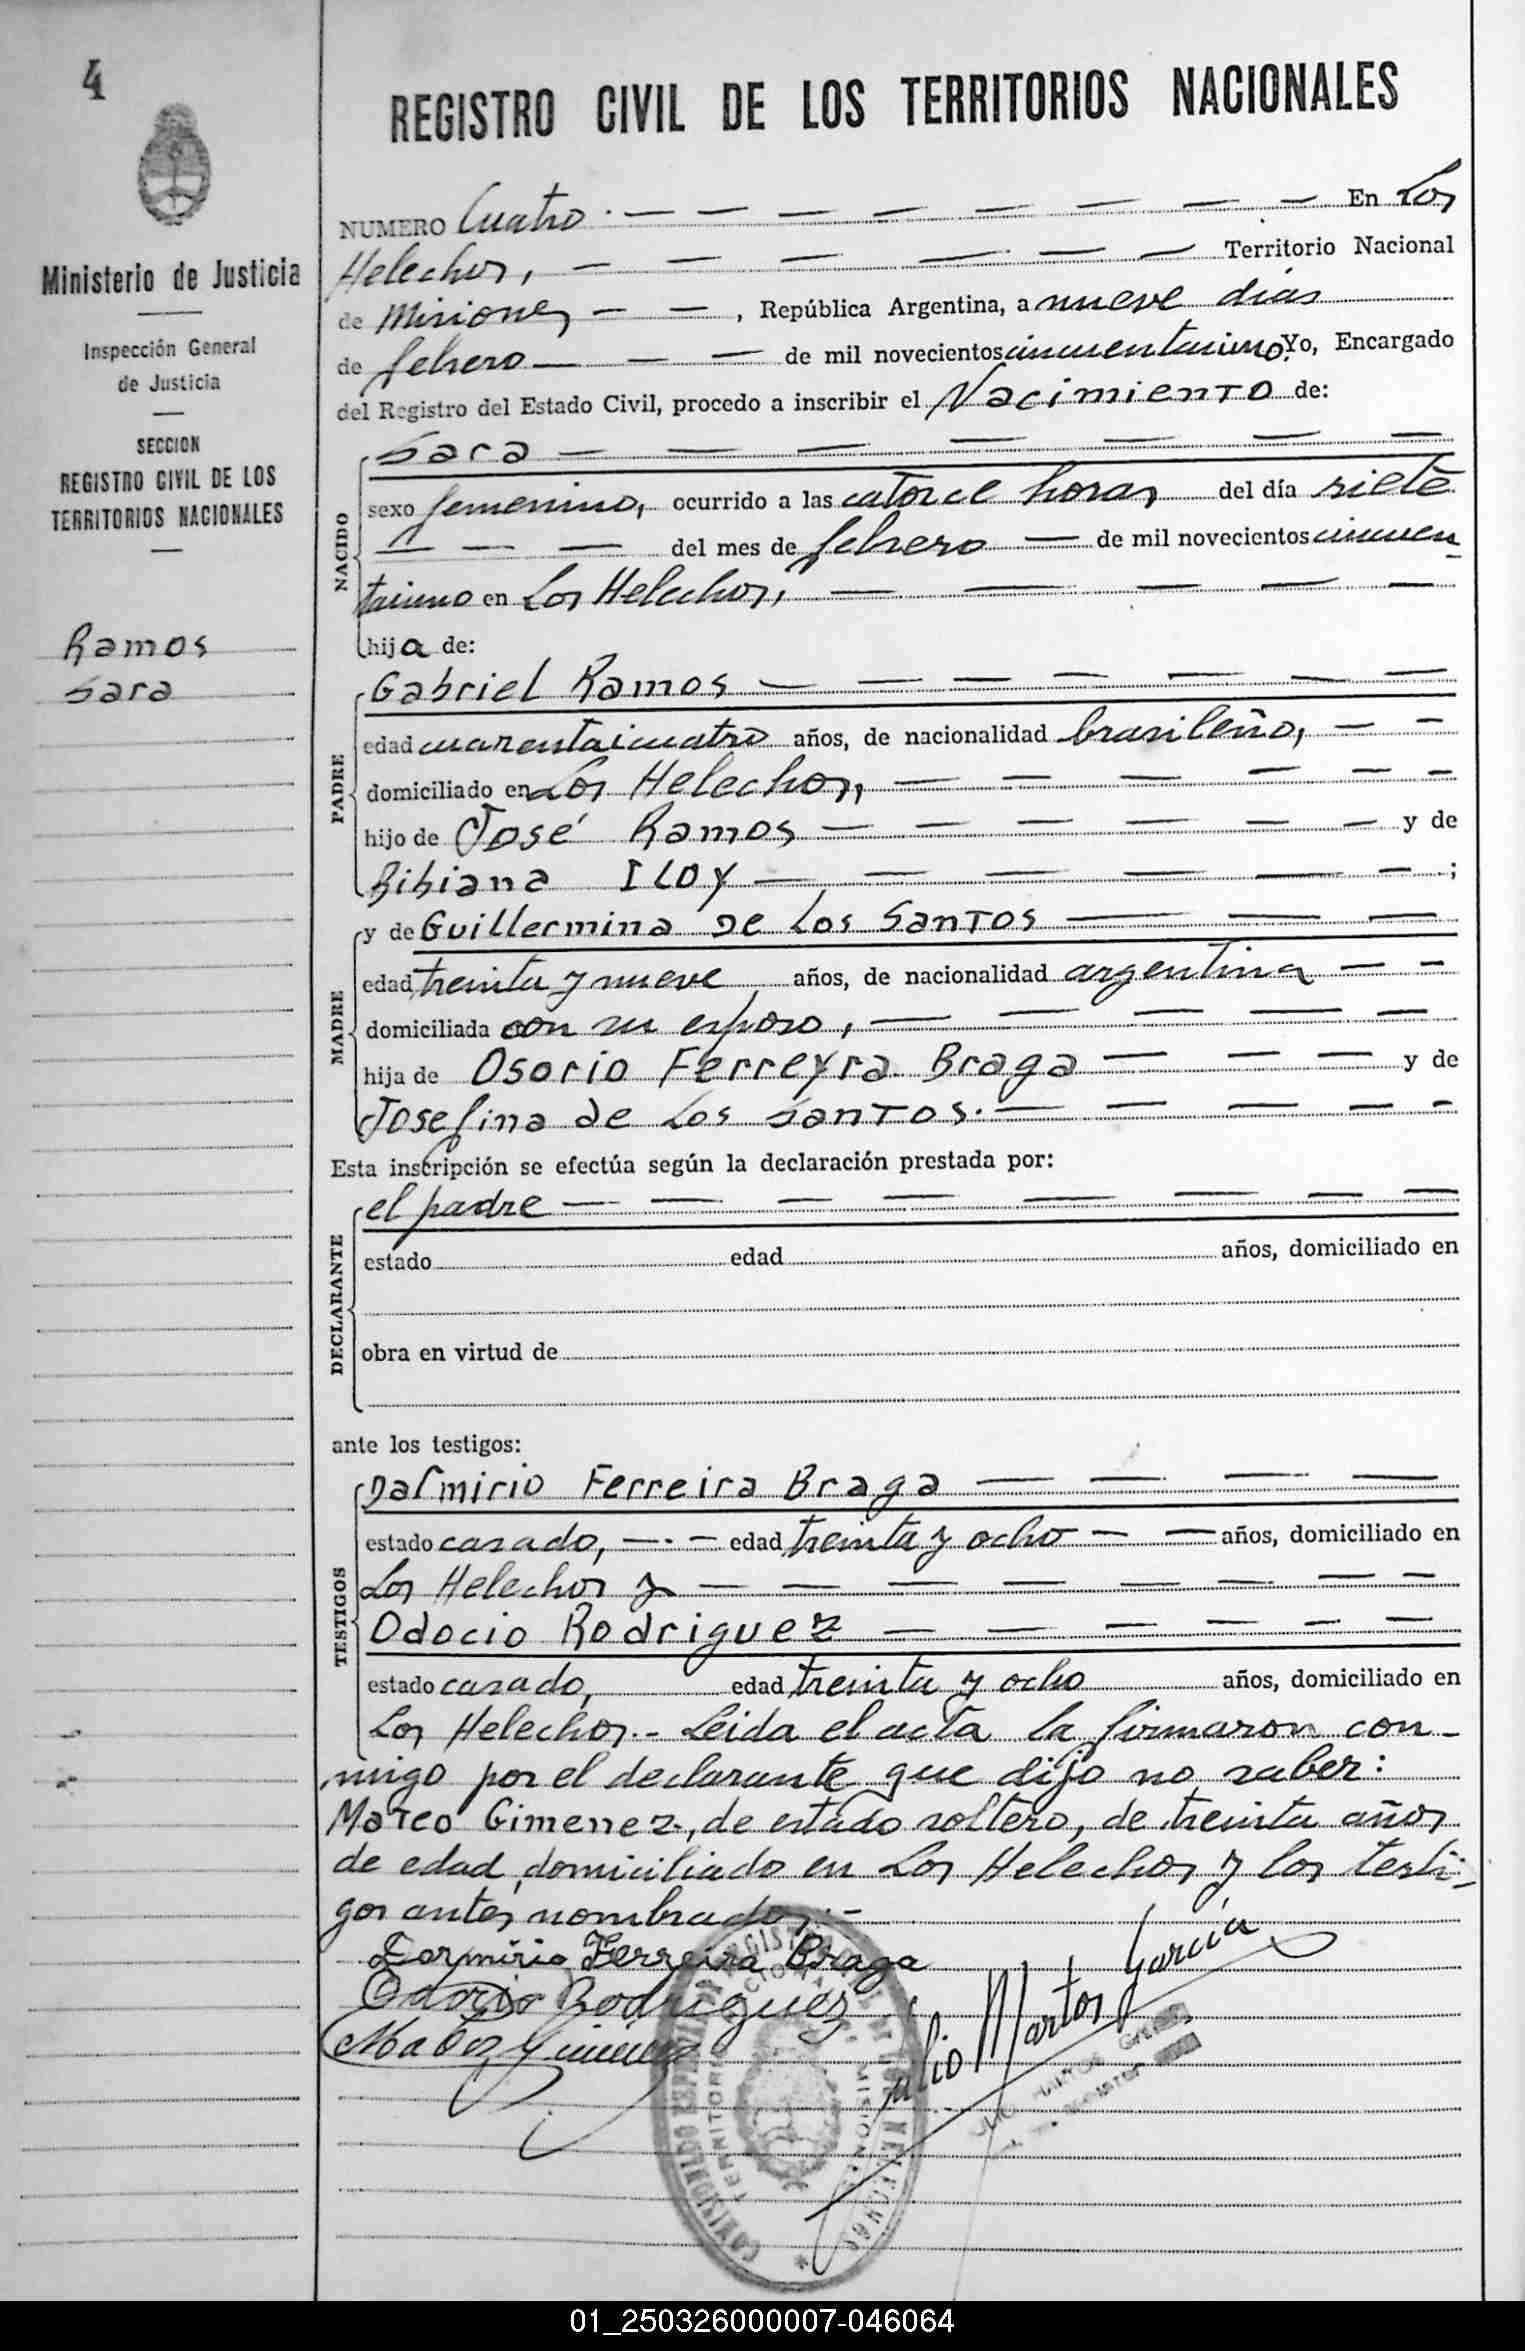 4
REGISTRO CIVIL DE LOS TERRITORIOS NACIONALES
Ministerio de Justicia
Inspección General
de Justicia
SECCION
REGISTRO CIVIL DE LOS
TERRITORIOS NACIONALES
Ramos
Sara
NUMERO Cuatro. — — — — — — — — En Los
Helechos, — — — — — — Territorio Nacional
de Misiones — — , República Argentina, a nueve días
de febrero — — — de mil novecientos cincuentaiuno. Yo, Encargado
del Registro del Estado Civil, procedo a inscribir el Nacimiento de:
NACIDO
Sara — — — — — — —
sexo femenino, ocurrido a las catorce horas del día siete
— — — del mes de febrero — de mil novecientos cincuen
taiuno en Los Helechos, — — — — —
hija de:
PADRE
Gabriel Ramos — — — — — — —
edad cuarentaicuatro años, de nacionalidad brasileño, — —
domiciliado en Los Helechos, — — — — — —
hijo de José Ramos — — — — — — y de
Bibiana Iloy — — — — — — ;
MADRE
y de Guillermina De Los Santos — — —
edad treinta y nueve años, de nacionalidad argentina — —
domiciliada con su esposo, — — — — —
hija de Osorio Ferreyra Braga — — — y de
Josefina de Los Santos. — — — — —
Esta inscripción se efectúa según la declaración prestada por:
DECLARANTE
el padre — — — — — — — —
estado edad años, domiciliado en
obra en virtud de
ante los testigos:
TESTIGOS
Dalmirio Ferreira Braga — — — —
estado casado, —.— edad treinta y ocho — — años, domiciliado en
Los Helechos y — — — — — — — —
Odocio Rodriguez — — — — — —
estado casado, edad treinta y ocho años, domiciliado en
Los Helechos.- Leida el acta la firmaron con-
migo por el declarante que dijo no saber:
Mateo Gimenez, de estado soltero, de treinta años
de edad, domiciliado en Los Helechos y los testi-
gos antes nombrados.-
Dormirio Ferreira Braga
Odocio Rodriguez
Julio Martos García
01_250326000007-046064